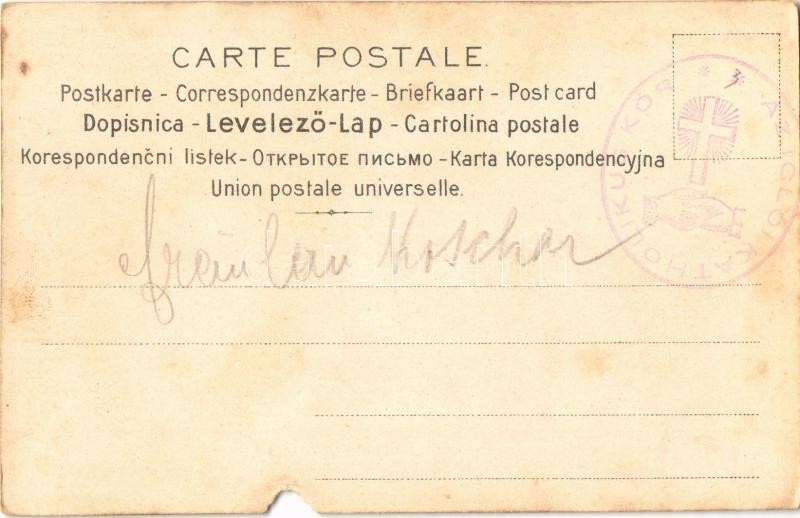 CARTE POSTALE.
Postkarte - Correspondenzkarte - Briefkaart - Post card
Dopisnica - Levelező-Lap - Cartolina postale
Korespondenčni listek - Открытое письмо - Karta Korespondencyjna
Union postale universelle.
AZ IGLÓI KATHOLIKUS KÖR
Fräulein